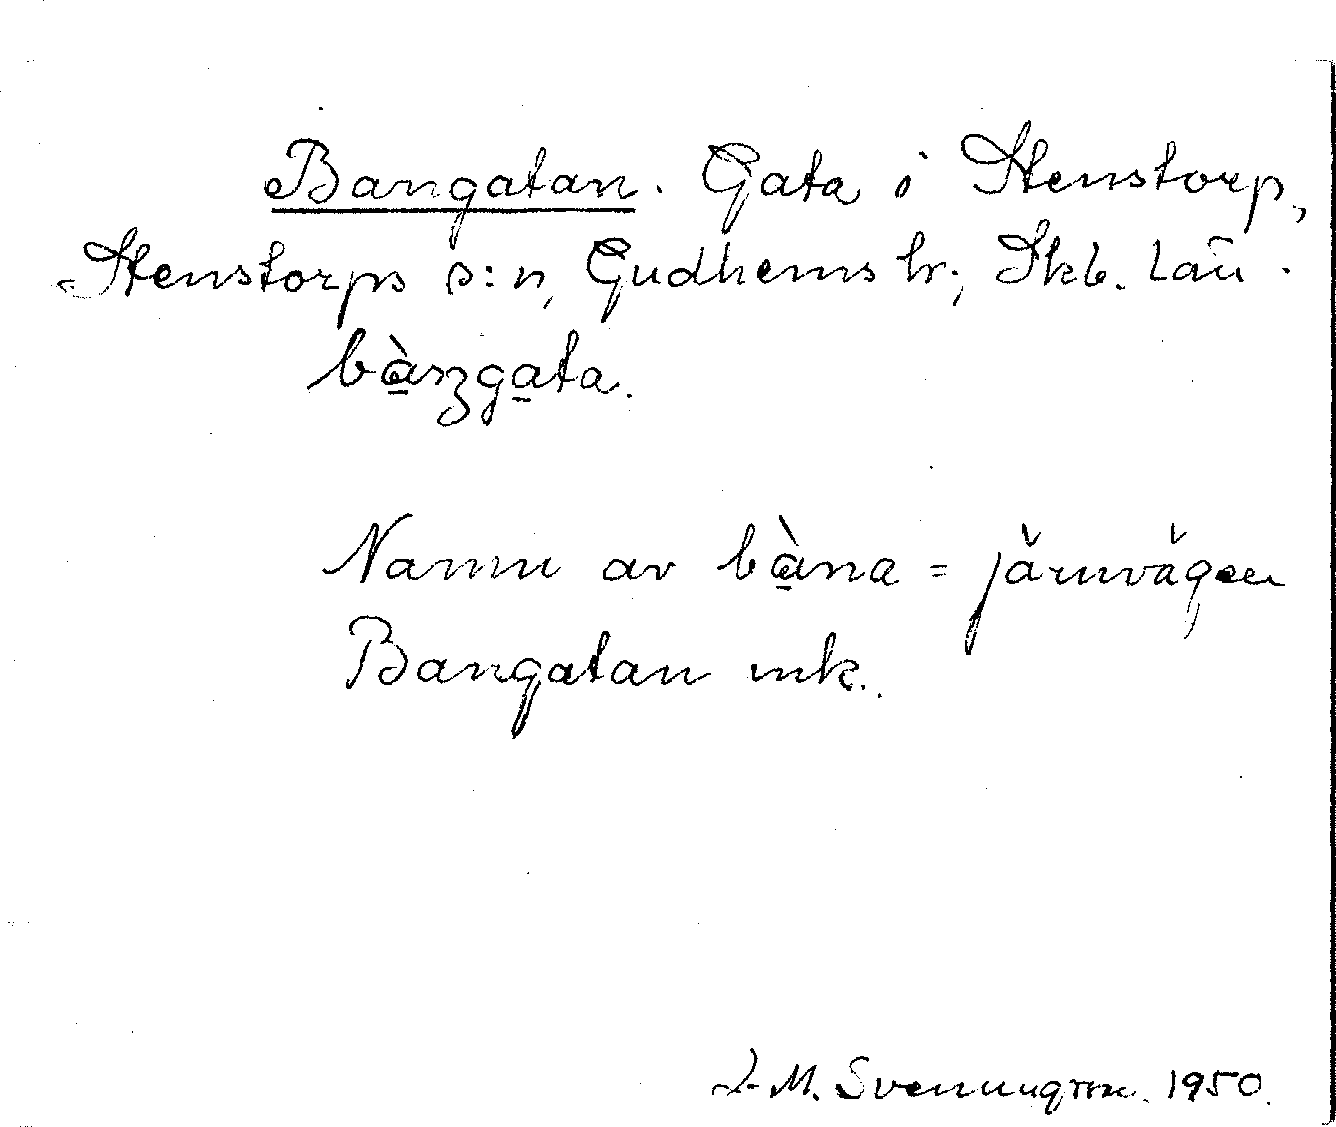 Bangatan. Gata i Stenstorp,
Stenstorps s:n, Gudhems hr, Skb. län.
bàngata.
Namn av bàna = järnvägen
Bangatan mk.
M. Svenungsson. 1950.